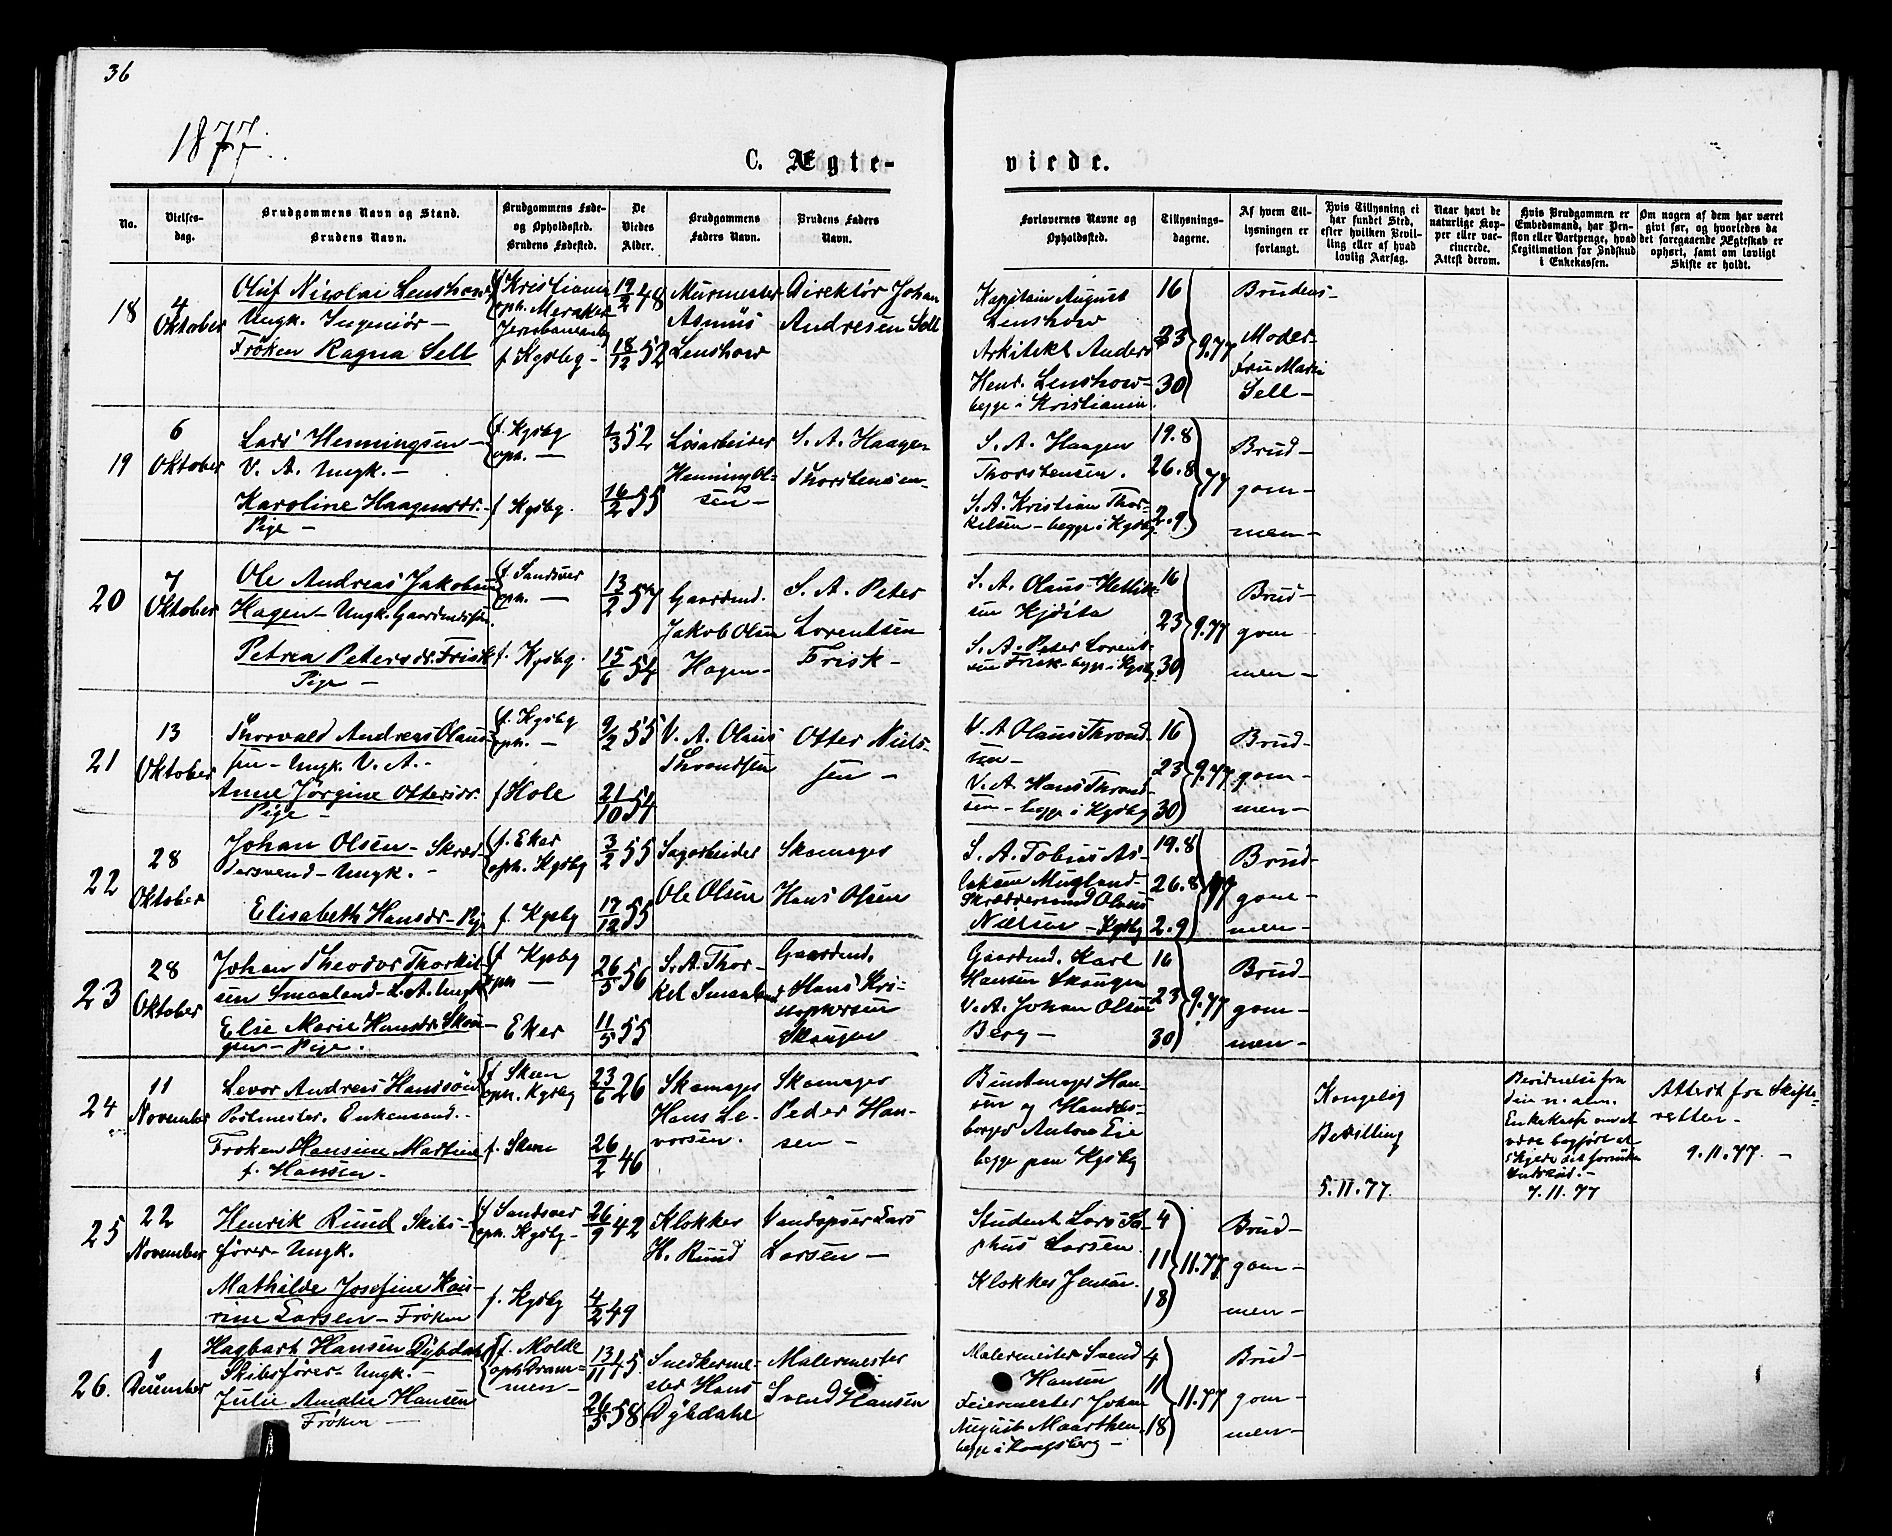 36
1877.
C. Ægte-
viede.
No.
Vielses-
dag.
Brudgommens Navn og Stand.
Brudens Navn.
Brudgommens Føde-
og Opholdssted.
Brudens Fødested.
De
Viedes
Alder.
Brudgommens
Faders Navn.
Brudens Faders
Navn.
Forlovernes Navne og
Opholdssted.
Tillysnings-
dagene.
Af hvem Til-
lysningen er
forlangt.
Hvis Tillysning ei
har fundet Sted,
efter hvilken Bevil-
ling eller af hvad
lovlig Aarsag.
Naar havt de
naturlige Kop-
per eller vac-
cinerede.
Attest derom.
Hvis Brudgommen er
Embedsmand, har Pen-
sion eller Vartpenge, hvad
Legitimation for Indskud
i Enkekassen.
Om nogen af dem har været
gift før, og hvorledes da
det foregaaende Ægteskab er
ophørt, samt om lovligt
Skifte er holdt.
18
4
Oktober
Oluf Nicolai Lenshow
Ungk. Ingeniör-
Fröken Ragna Sell
f Kristiania
oph. Meraker
Jernbaneanlæg
f Kgsbg-
19/2 48
18/12 52
Murmester
Asmus
Lenshow
Direktör Johan
Andresen Sell
Kapitain August
Lenshow
Arkitekt Anders
Henr. Lenshow-
begge i Kristiania
16
23
30
9.77
Brudens
Moder-
Fru Marie
Sell-
19
6
Oktober
Lars Henningsen-
V. A. Ungk.-
Karoline Haagensdr.
Pige-
f. Kgsbg
oph. -
f Kgsbg.
1/3 52
16/2 55
Løsarbeider
Henning Ol-
sen-
S. A. Haagen
Thorstensen-
S. A. Haagen
Thorstensen.
S. A. Kristian Thor-
kelsen-begge i Kgsbg.
19.8
26.8
2.9
77
Brud-
gom-
men-
20
7
Oktober
Ole Andreas Jakobsen
Hagen-Ungk. Gaardmandssön.
Petrea Petersdr. Frisk
Pige-
f Sandsver
oph. -
f. Kgsbg.
13/2 57
15/6 54
Gaardmd.
Jakob Olsen
Hagen-
S. A. Peter
Lorentsen
Frisk-
S. A. Olaus Kittil-
sen
S. A. Peter Lorent-
sen Frisk-begge i Kgsbg
16
23
30
9.77
Brud-
gom-
men-
21
13
Oktober
Thorvald Andreas Olaus-
sen-Ungk. V. A.-
Anne Jörgine Ottersdr.
Pige-
f. Kgsbg
oph. -
f Hole
9/2 55
21/10 54
V. A. Olaus
Throndsen
Otter Niels-
sen-
V. A Olaus Thrond-
sen-
V. A. Hans Thrond-
sen-begge i Kgsbg
16
23
30
9.77
Brud-
gom-
men-
22
28
Oktober
Johan Olsen-Skræd-
dersvend-Ungk.-
Elisabeth Hansdr-Pig
f. Eker
oph. Kgsbg
f. Kgsbg
3/2 55
17/12 55
Sagarbeider
Ole Olsen
Skomager
Hans Olsen
S. A. Tobias As-
laksen Mugland-
Skræddersvend Olaus
Nielsen-Kgsbg
19.8
26.8
2.9
77
Brud-
gom-
men-
23
28
Oktober
Johan Theodor Thorkil-
sen Smaaland-S. A. Ungk
Elise Marie Hansdr. Skou-
gen-Pige.
f Kgsbg
oph -
Eker
26/5 56
11/5 55
S. A. Thor-
kel Smaaland
Gaardmd.
Hans Kri-
stophersen
Skougen
Gaardmd. Karl
Hansen Skougen
V. A. Johan Olsen
Berg-
16
23
30
9.77
Brud-
gom-
men-
24
11
November
Levor Andreas Hanssön
Postmester. Enkemand.
Fröken Hansine Martine
f. Hansen-
f Skien
oph. Kgsbg
f. Skien
23/6 26
26/2 46
Skomager
Hans Le-
vorsen.
Skomager
Peder Han-
sen-
Buntmager Han-
sen og Handels-
borger Anton Eie
begge paa Kgsbg
Kongelig
Bevilling
5.11.77.
Bevidnelse fra
den n. alm.
Enkekasse om at
være
7.11.77
Attest fra Skifte-
retten-
9.11.77.-
25
22
November
Henrik Ruud Skibs-
förer-Ungk.
Mathilde Josefine Kau-
rine Larsen-Fröken
f Sandsver
oph. Kgsbg-
f. Kgsbg
26/9 42
4/2 49
Klokker
H. Ruud
Larsen-
Student Lars Sa-
phus Larsen.
Klokker Jensen.
4
11
18
11.77
Brud-
gom-
men-
26.
1
December
Hagbart Hansen Dybdahl
Skibsförer-Ungk.-
Julie Amalie Hansen
Fröken-
f. Molde
oph Dram-
men-
13/11 45
26/5 58
Snedkerme-
ster Hans
Dybdahl
Malermester
Svend Hansen
Malermester Svend
Hansen
Feiermester Johan
August Maarthen.
begge i Kongsberg-
4
11
18
11.77
Brud-
gom-
men-